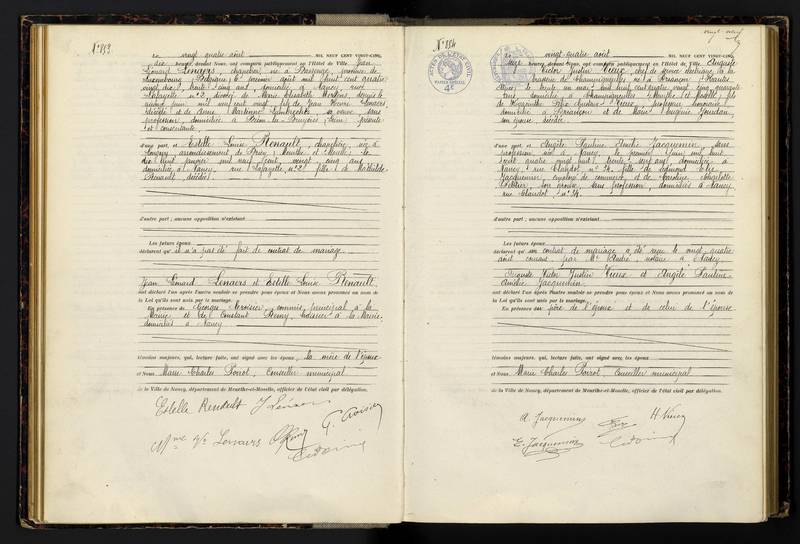 N° 883
Le vingt quatre août MIL NEUF CENT VINGT-CINQ,
dix heures, devant Nous, ont comparu publiquement en l'Hôtel de Ville. Jean
Léonard Lenaers, chapelier, né à Bassenge, province de
Limbourg (Belgique) le premier août mil huit cent quatre
vingt dix, trente cinq ans, domicilié à Nancy, rue
Lafayette n° 2, divorcé de Marie Elisabeth Mertens, depuis le
mil neuf cent vingt, fils de Jean Henri Lenaers
décédé et de Anne Lambrechts, sa veuve, sans
profession, domiciliée à Seine présente
et consentante,
d'une part, et Estelle Louise Renault, chapelière, née à
Longwy, arrondissement de Briey, Meurthe et Moselle, le
dix huit janvier mil neuf cent, vingt cinq ans,
domiciliée à Nancy, rue Lafayette n° 2, fille de Mathilde
Renault décédée
d'autre part; aucune opposition n'existant
Les futurs époux
déclarent qu'il n'a pas été fait de contrat de mariage.
Jean Léonard Lenaers et Estelle Louise Renault
ont déclaré l'un après l'autre vouloir se prendre pour époux et Nous avons prononcé au nom de
la Loi qu'ils sont unis par le mariage.
En présence de George Croisier, commis principal à la
Mairie et de Constant Remy, huissier à la Mairie
domiciliés à Nancy
témoins majeurs, qui, lecture faite, ont signé avec les époux, la mère de l'époux
et Nous, Marie Charles Poirot, Conseiller municipal
de la Ville de Nancy, département de Meurthe-et-Moselle, officier de l'état civil par délégation.
Estelle Renault J Lenaers
G. Croisier
Mme Vve Lenaers
N° 884
Le vingt quatre août MIL NEUF CENT VINGT-CINQ,
heures, devant Nous, ont comparu publiquement en l'Hôtel de Ville. Auguste
Victor Justin Vieux, chef de service électrique de la
brasserie de Champigneulles, né à Briançon (Hautes
Alpes) le trente un mai mil huit cent quatre vingt cinq, quarante
ans, domicilié à Champigneulles (Meurthe et Moselle), fils
de Hyacinthe Vieux, professeur honoraire,
domicilié à Briançon et de Marie Eugénie Jourdan,
son épouse décédée
d'une part, et Angèle Pauline Amélie Jacquemin, sans
profession, née à Nancy, le premier juin mil huit
cent quatre vingt huit, trente sept ans, domiciliée à
Nancy, rue Claudot, n° 34, fille de Edmond Elie
Jacquemin, employé de commerce, et de Caroline Charlotte
son épouse sans profession, domiciliés à Nancy,
rue Claudot, n° 34.
d'autre part; aucune opposition n'existant
Les futurs époux
déclarent qu'un contrat de mariage a été reçu le vingt quatre
août courant par Me André, notaire à Nancy
Auguste Victor Justin Vieux et Angèle Pauline
Amélie Jacquemin
ont déclaré l'un après l'autre vouloir se prendre pour époux et Nous avons prononcé au nom de
la Loi qu'ils sont unis par le mariage.
En présence du père de l'époux et de celui de l'épouse
témoins majeurs, qui, lecture faite, ont signé avec les époux
et Nous, Marie Charles Poirot, Conseiller municipal
de la Ville de Nancy, département de Meurthe-et-Moselle, officier de l'état civil par délégation.
A. Jacquemin H. Vieux
E. Jacquemin